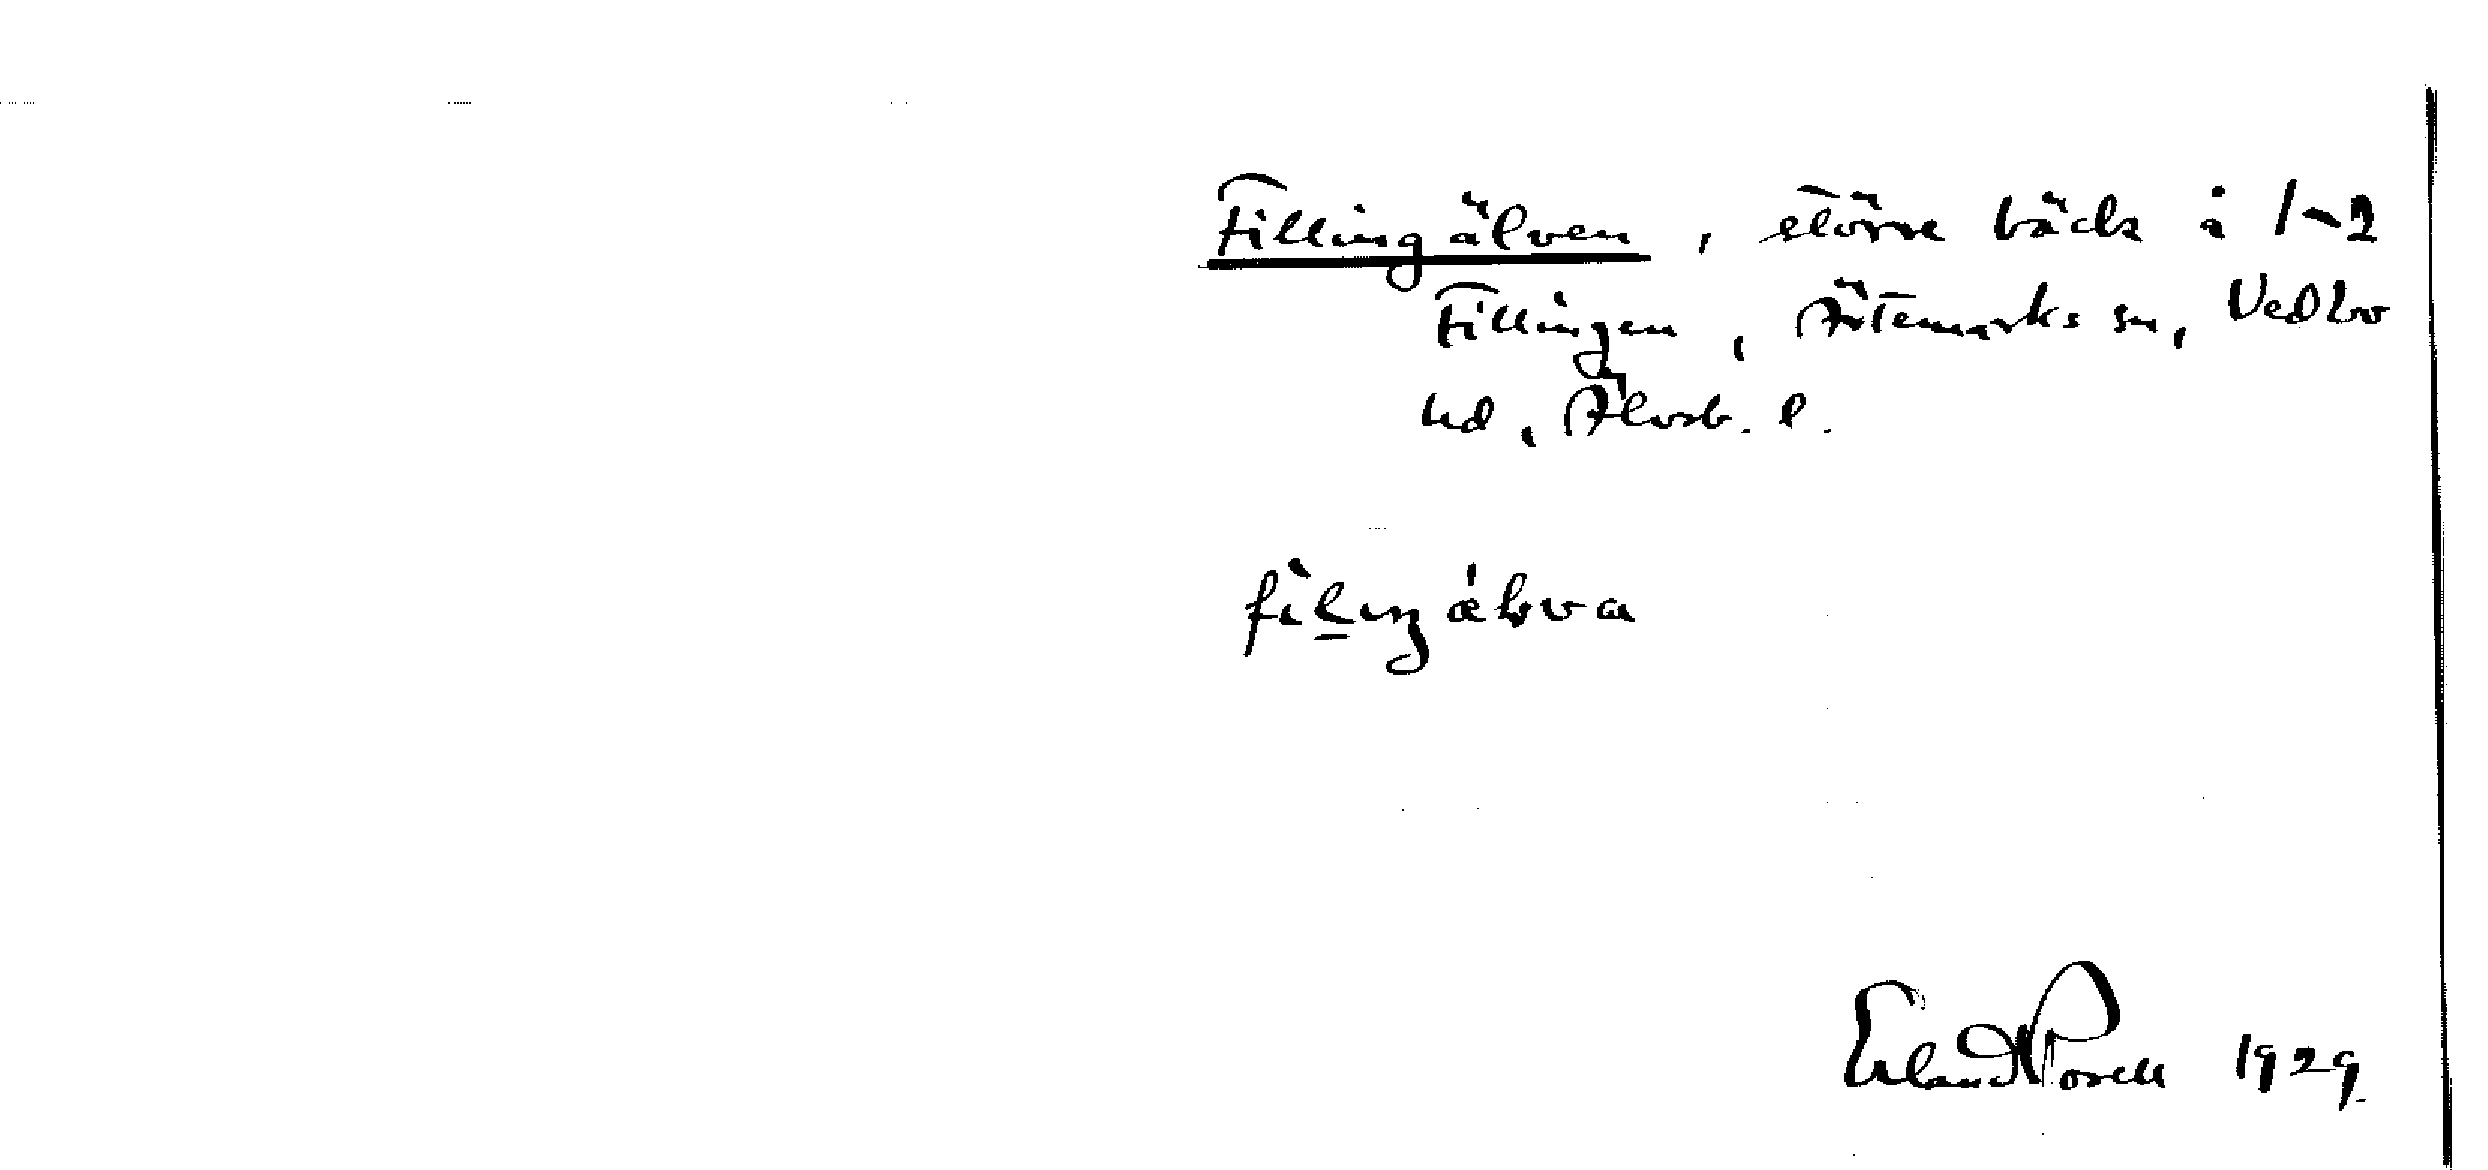 Fillingälven, större bäck å 1-2
Fillingen, Ärtemarks sn, Vedbo
hd, Älvsb. l.
fìl̲ıŋǽlva
Erland Rosell 1929